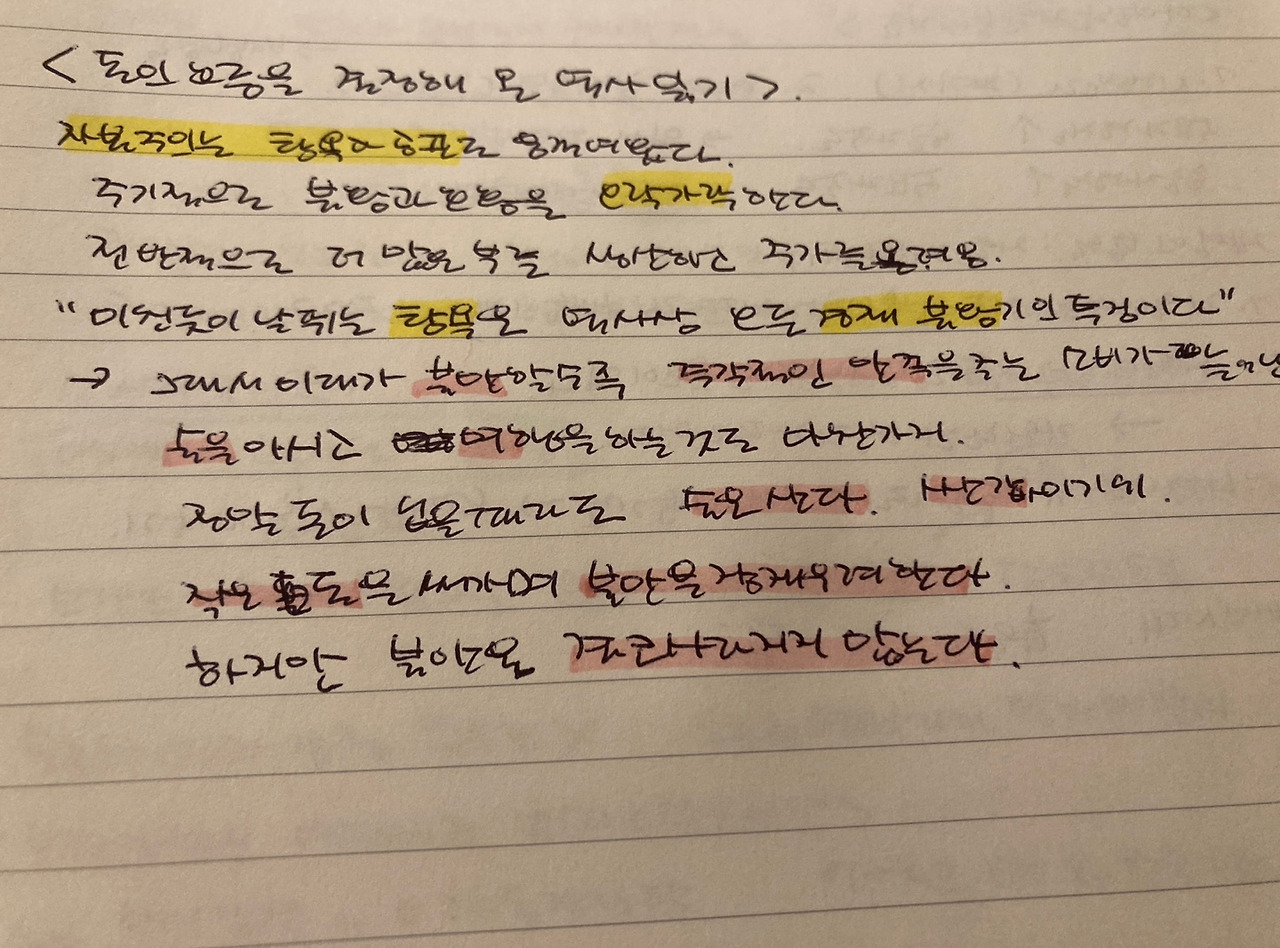 < 돈의 흐름을 결정해 온 역사 읽기 >.
자본주의는 탐욕과 공포로 움직여왔다.
주기적으로 불황과 호황을 오락가락한다.
전반적으로 더 많은 부를 생산하고 주가를 올려옴.
"미친듯이 날뛰는 탐욕은 역사상 모든 경제 불황기의 특징이다"
→ 그래서 시대가 불안할수록 즉각적인 만족을 주는 소비가 늘어난
술을 마시고 여행을 하는 것도 마찬가지.
정말 돈이 없을때라도 술은 산다.
작은 돈을 써가며 불안을 잠재우려 한다.
하지만 불안은 결코 사라지지 않는다.